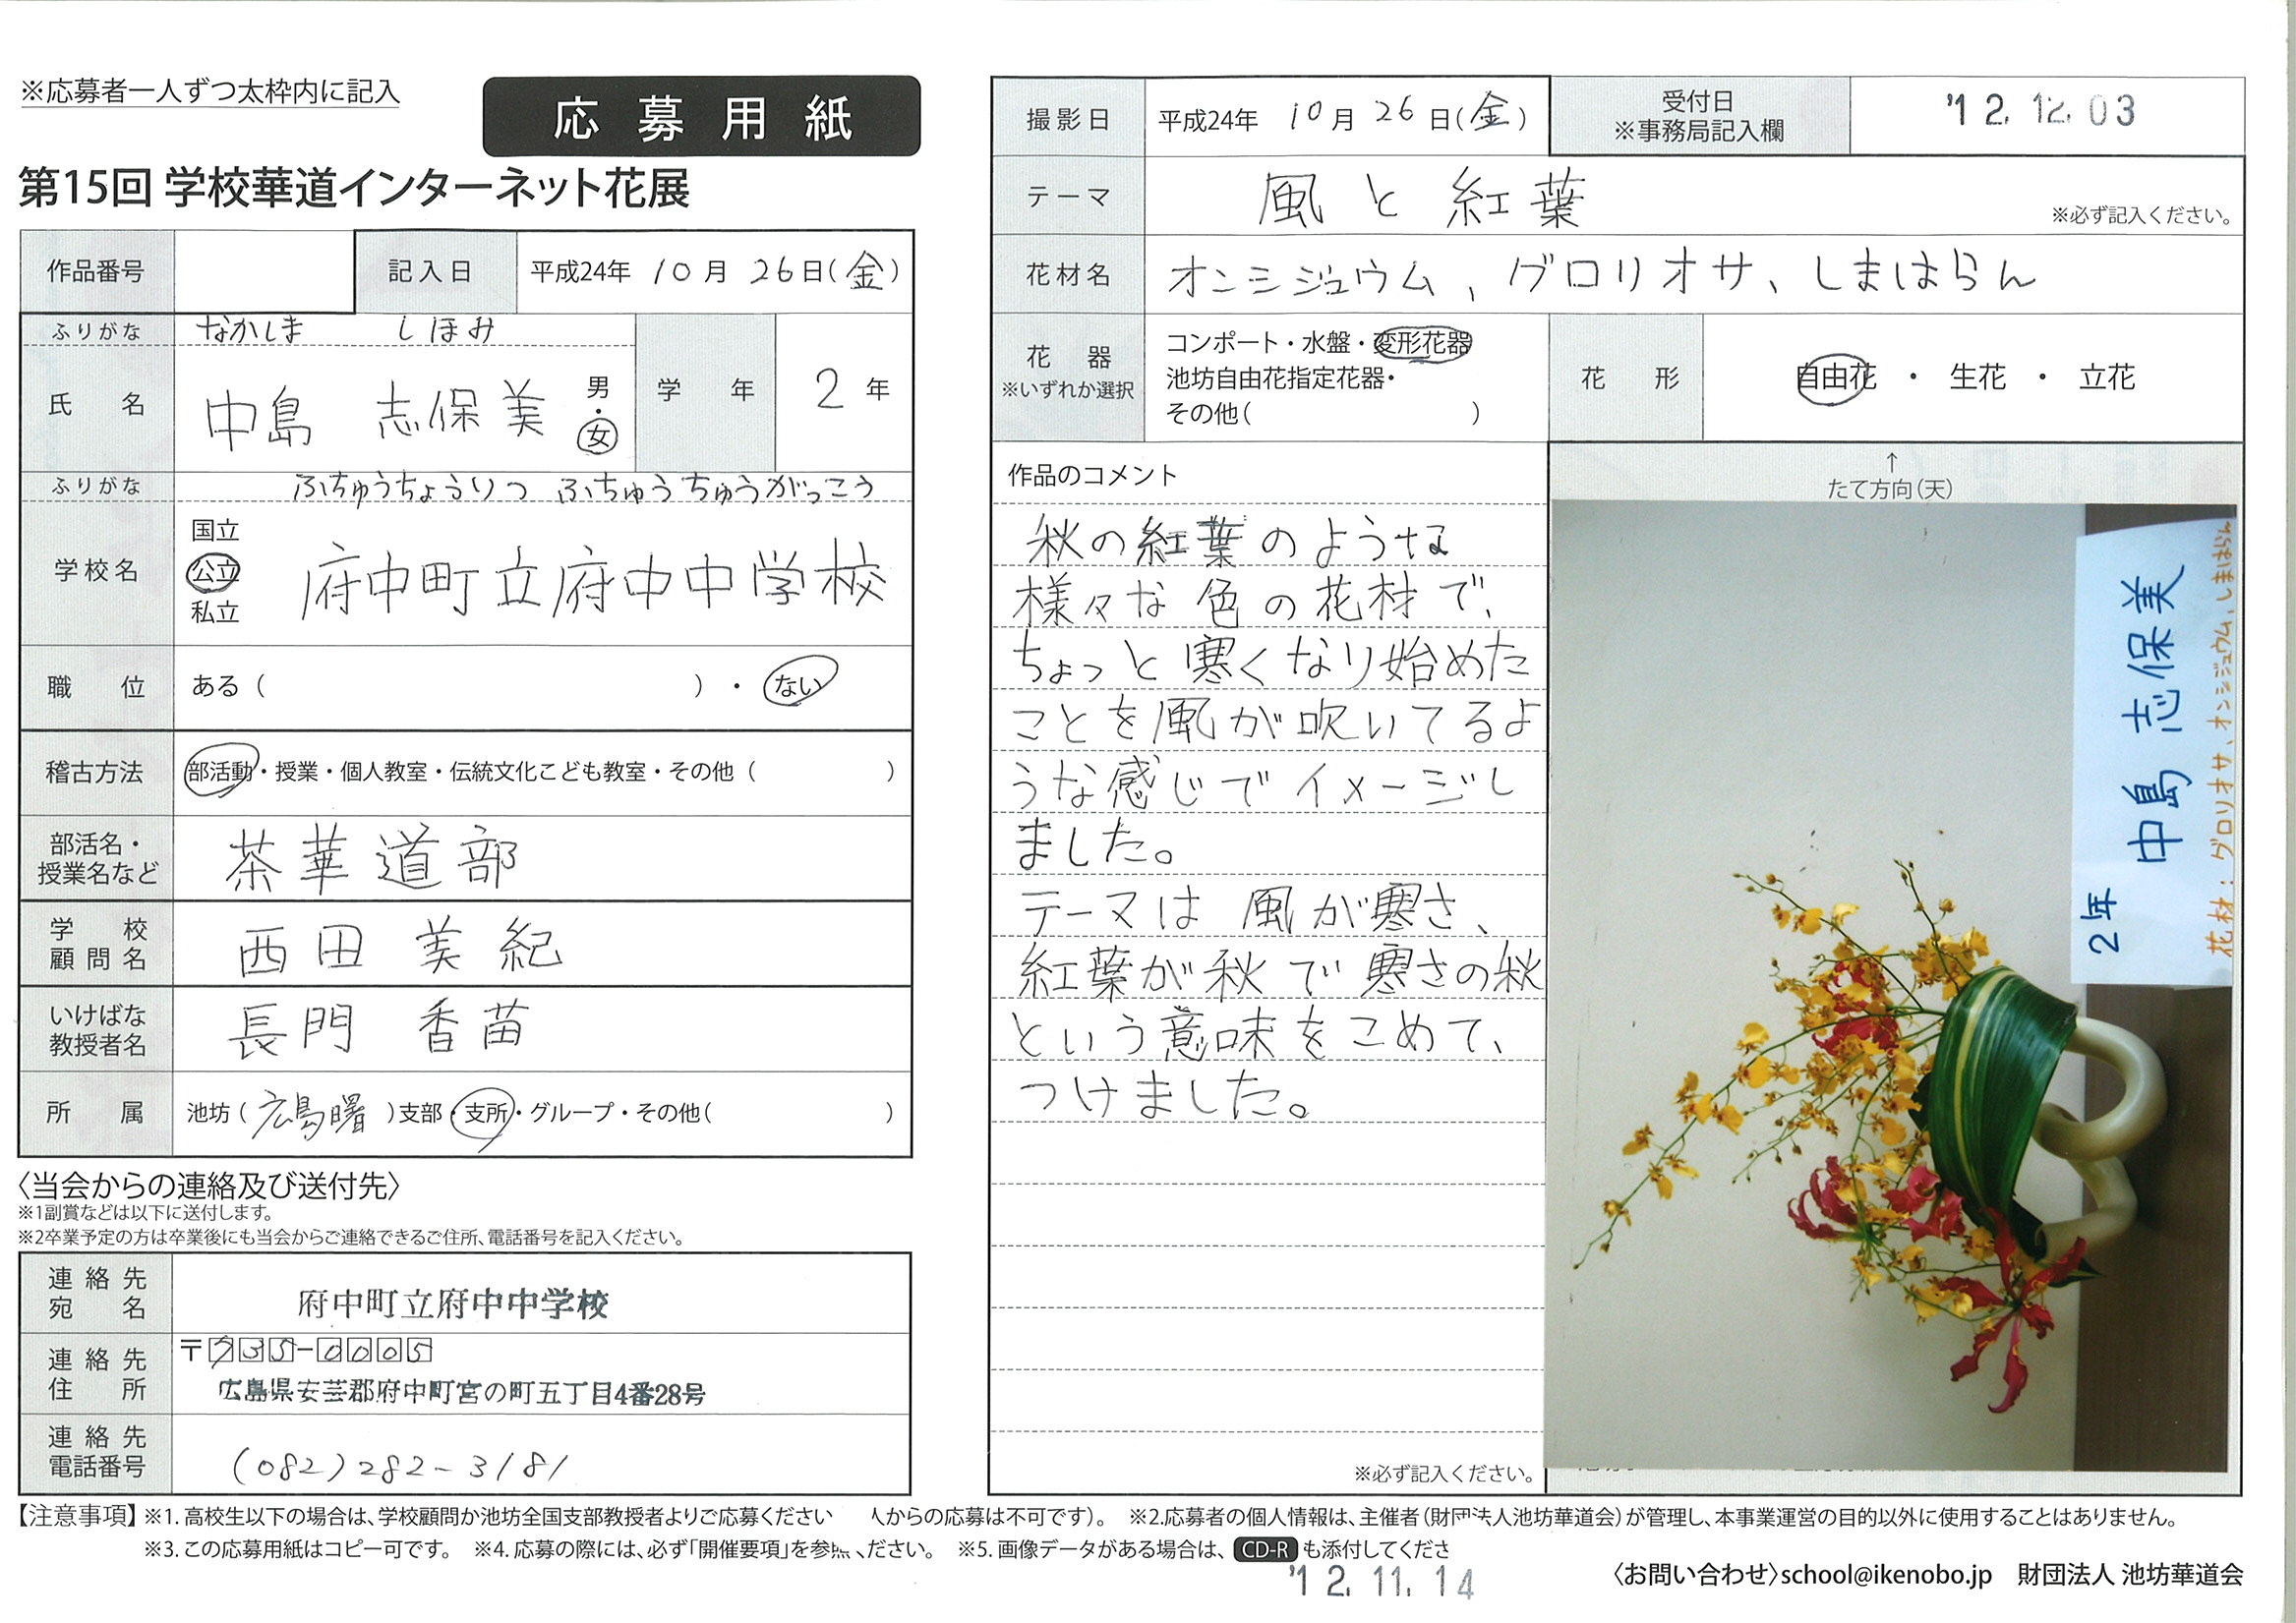 ※応募者一人ずつ太枠内に記入
応募用紙
第15回 学校華道インターネット花展
作品番号
記入日 平成24年 10月 26日(金)
ふりがな なかしま しほみ
氏名 中島 志保美 男・女
学年 2年
ふりがな ふちゅうちょうりつ ふちゅうちゅうがっこう
学校名 国立 公立 私立 府中町立府中中学校
職位 ある( )・ない
稽古方法 部活動・授業・個人教室・伝統文化こども教室・その他( )
部活名・授業名など 茶華道部
学校顧問名 西田 美紀
いけばな教授者名 長門 香苗
所属 池坊(広島曙)支部・支所・グループ・その他( )
〈当会からの連絡及び送付先〉
※1副賞などは以下に送付します。
※2卒業予定の方は卒業後にも当会からご連絡できるご住所、電話番号を記入ください。
連絡先宛名 府中町立府中中学校
連絡先住所 〒735-0005
広島県安芸郡府中町宮の町五丁目4番28号
連絡先電話番号 (082)282-3181
撮影日 平成24年 10月 26日(金)
受付日 ※事務局記入欄 '12.12.03
テーマ 風と紅葉 ※必ず記入ください。
花材名 オンシジュウム、グロリオサ、しまはらん
花器 ※いずれか選択
コンポート・水盤・変形花器
池坊自由花指定花器・
その他( )
花形 自由花・生花・立花
作品のコメント
秋の紅葉のような
様々な色の花材で、
ちょっと寒くなり始めた
ことを風が吹いてるよ
うな感じでイメージし
ました。
テーマは風が寒さ、
紅葉が秋で寒さの秋
という意味をこめて、
つけました。
※必ず記入ください。
↑
たて方向(天)
2年 中島 志保美
花材:グロリオサ、オンシジュウム、しまはらん
【注意事項】※1.高校生以下の場合は、学校顧問か池坊全国支部教授者よりご応募ください 人からの応募は不可です)。 ※2.応募者の個人情報は、主催者(財団法人池坊華道会)が管理し、本事業運営の目的以外に使用することはありません。
※3.この応募用紙はコピー可です。 ※4.応募の際には、必ず「開催要項」を参照ください。 ※5.画像データがある場合は、CD-Rも添付してくださ
'12.11.14
〈お問い合わせ〉school@ikenobo.jp 財団法人 池坊華道会